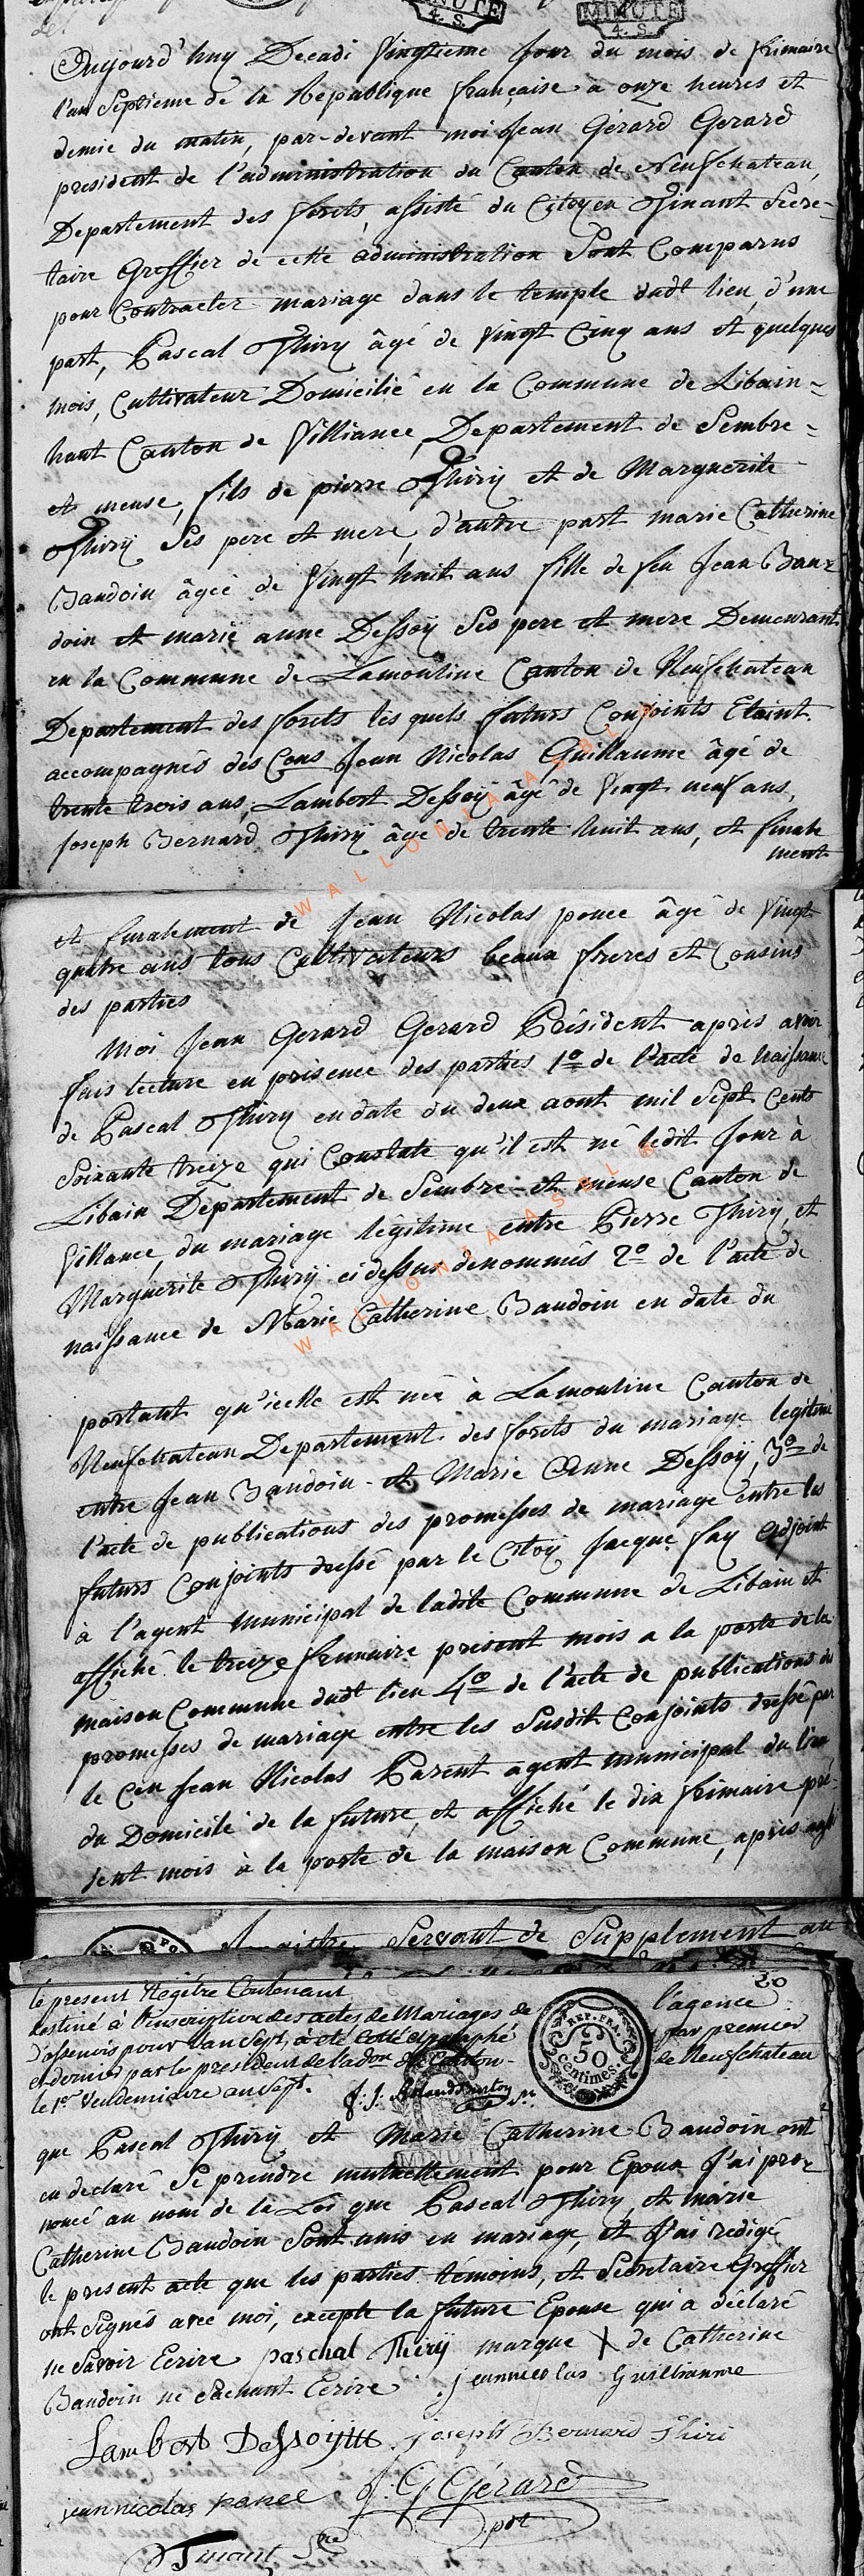 MINUTE
4. S.
MINUTE
4. S.
Aujourd'huy Decadi Vingtieme jour du mois de frimaire
l'an Septieme de la Republique française à onze heures et
demie du matin, par-devant moi Jean Gérard Gerard
president de l'administration du Canton de Neufchateau,
Departement des forets, assisté du Citoyen Dinant Sécre-
taire Greffier de cette administration Sont Comparus
pour Contracter mariage dans le temple dudt lieu, d'une
part, Pascal Thiry âgé de vingt Cinq ans et quelques
mois, Cultivateur Domicilié en la Commune de Libain-
haut Canton de Villiance, Departement de Sembre-
et meuse, fils de pierre Thiry et de Marguerite
Thirÿ Ses pere et mere, d'autre part marie Catherine
Baudoin âgée de Vingt huit ans fille de feu Jean Bau-
doin et marie anne Dessoÿ Ses pere et mere Demeurant
en la Commune de Lamouline Canton de Neufchateau
Departement des forets les quels futurs Conjoints Etaint
accompagnés des Cens Jean Nicolas Guillaume âgé de
trente trois ans, Lambert Dessoÿ âgé de Vingt neuf ans,
Joseph Bernard Thirÿ âgé de trente huit ans, et finale
ment
WALLONIA ASBL
et finalement de Jean Nicolas ponce âgé de Vingt
quatre ans tous Cultivateurs beaux freres et Cousins
des parties
Moi Jean Gerard Gerard Président après avoir
fais lecture en présence des parties 1o de l'acte de Naissance
de Pascal Thiry en date du deux aout mil Sept Cents
Soixante treize qui Constate qu'il est né ledit Jour à
Libain Departement de Sembre-et meuse Canton de
Villance, du mariage légitime entre Pierre Thiry, et
Marguerite Thirÿ ci dessus denommés 2o de l'acte de
naissance de Marie Catherine Baudoin en date du
WALLONIA ASBL
portant qu'icelle est née à Lamouline Canton de
Neufchateau Departement des forets du mariage legitime
entre Jean Baudoin et Marie Anne Dessoÿ, 3o de
l'acte de publications des promesses de mariage entre les
futurs Conjoints dressé par le Citoÿ Jacque Fay Adjoint
à l'agent municipal de ladite Commune de Libain et
affiché le treize frimaire présent mois a la porte de la
maison Commune dudt lieu 4o de l'acte de publications des
promesses de mariage entre les Susdit Conjoints dressé par
le Cen Jean Nicolas Parent agent municipal du lieu
du Domicile de la future, et affiché le dix frimaire pré-
sent mois à la porte de la maison Commune, après
Servant de Supplement au
20
le present Régitre Contenant
destiné à l'inscription des actes de Mariages de l'agence
D'assenois pour l'an Sept, a été Cotté et paraphé par premier
et dernier par le president de l'adon de Canton de Neufchateau
le 1er Vendemiaire an Sept.
REP. FRA.
50
centimes
que Pascal Thirÿ et Marie Catherine Baudoin ont
eu declaré Se prendre mutuellement pour Epoux J'ai pro-
noncé au nom de la Loi que Pascal Thiry, et marie
Catherine Baudoin Sont unis en mariage, et J'ai redigé
le present acte que les parties témoins, et Secretaire Greffier
ont Signés avec moi, excepté la future Epouse qui a déclaré
ne Savoir Ecrire paschal Thirÿ marque X de Catherine
Baudoin ne Sachant Ecrire jeannicolas Guillianme
Lambert Dessoÿ joseph Bernard Thiri
jean nicolas ponce J: G Gérard
pdt
Dinant Sre